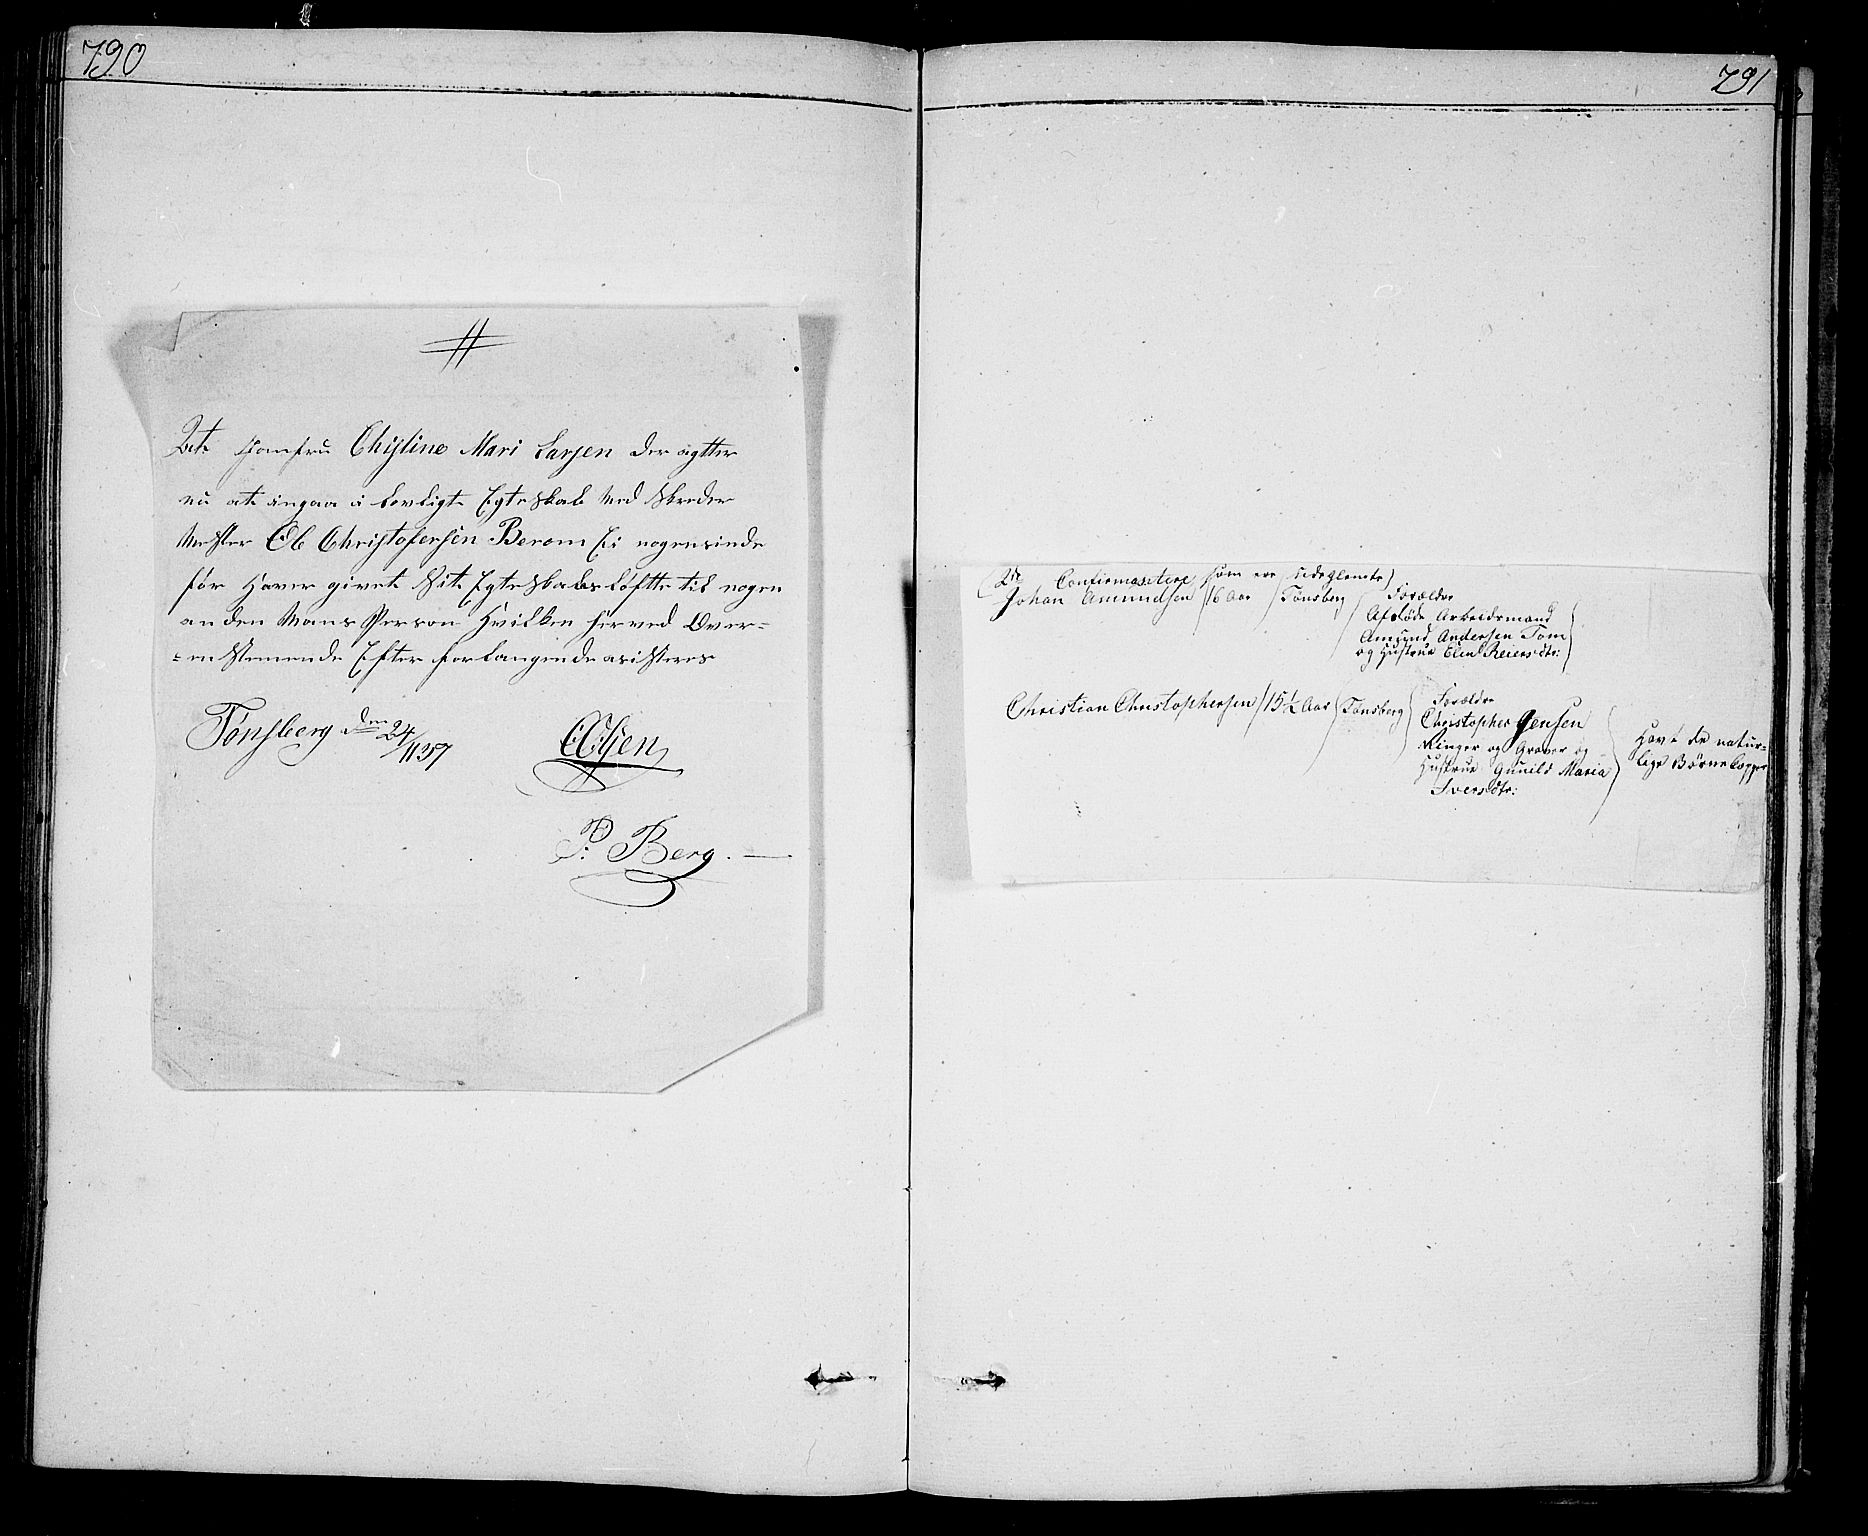 790
At Jomfru Chistine Mari Larsen der agtter
nu at ingaa i lovligt Egteskab Med Skreder
Mester Ole Christofersen Berom Ei nogensinde
før Haver givet Sit Egteskabs Løftte til nogen
anden Mans Person Hvilken herved Over=
=enstemende Efter forlangende atisteres
Tønsberg den 24/11 37
P. Berg.
791
Confirmantere som ere udeglemte)
Johan Amundsen / 16 Aar / Tønsberg / Forældre
Afdøde Arbeidsmand
Amund Andersen Tom
og Hustrue Elen Reiersdtr:
Christian Christophersen / 15½ Aar / Tønsberg / Forældre
Christopher Jensen
Ringer og Graver og
Hustrue Gunild Maria
Iversdtr:
Havt de natur=
lige Børnekopper